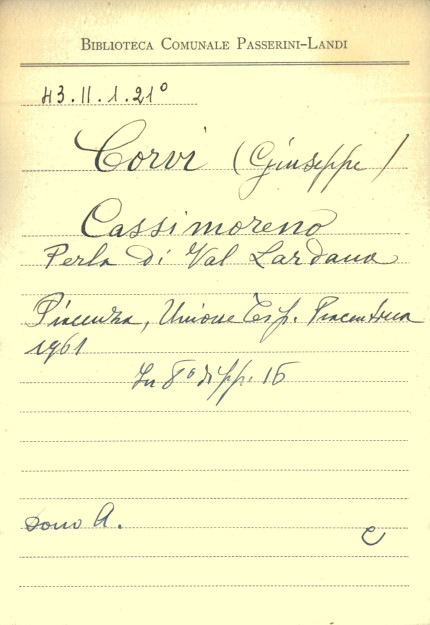 BIBLIOTECA COMUNALE PASSERINI-LANDI
43.II.1.21°
Corvi (Giuseppe)
Cassimoreno
Perla di Val Lardana
Piacenza, Unione Tip. Piacentina
1961
In 8° di pp. 16
dono A.
C